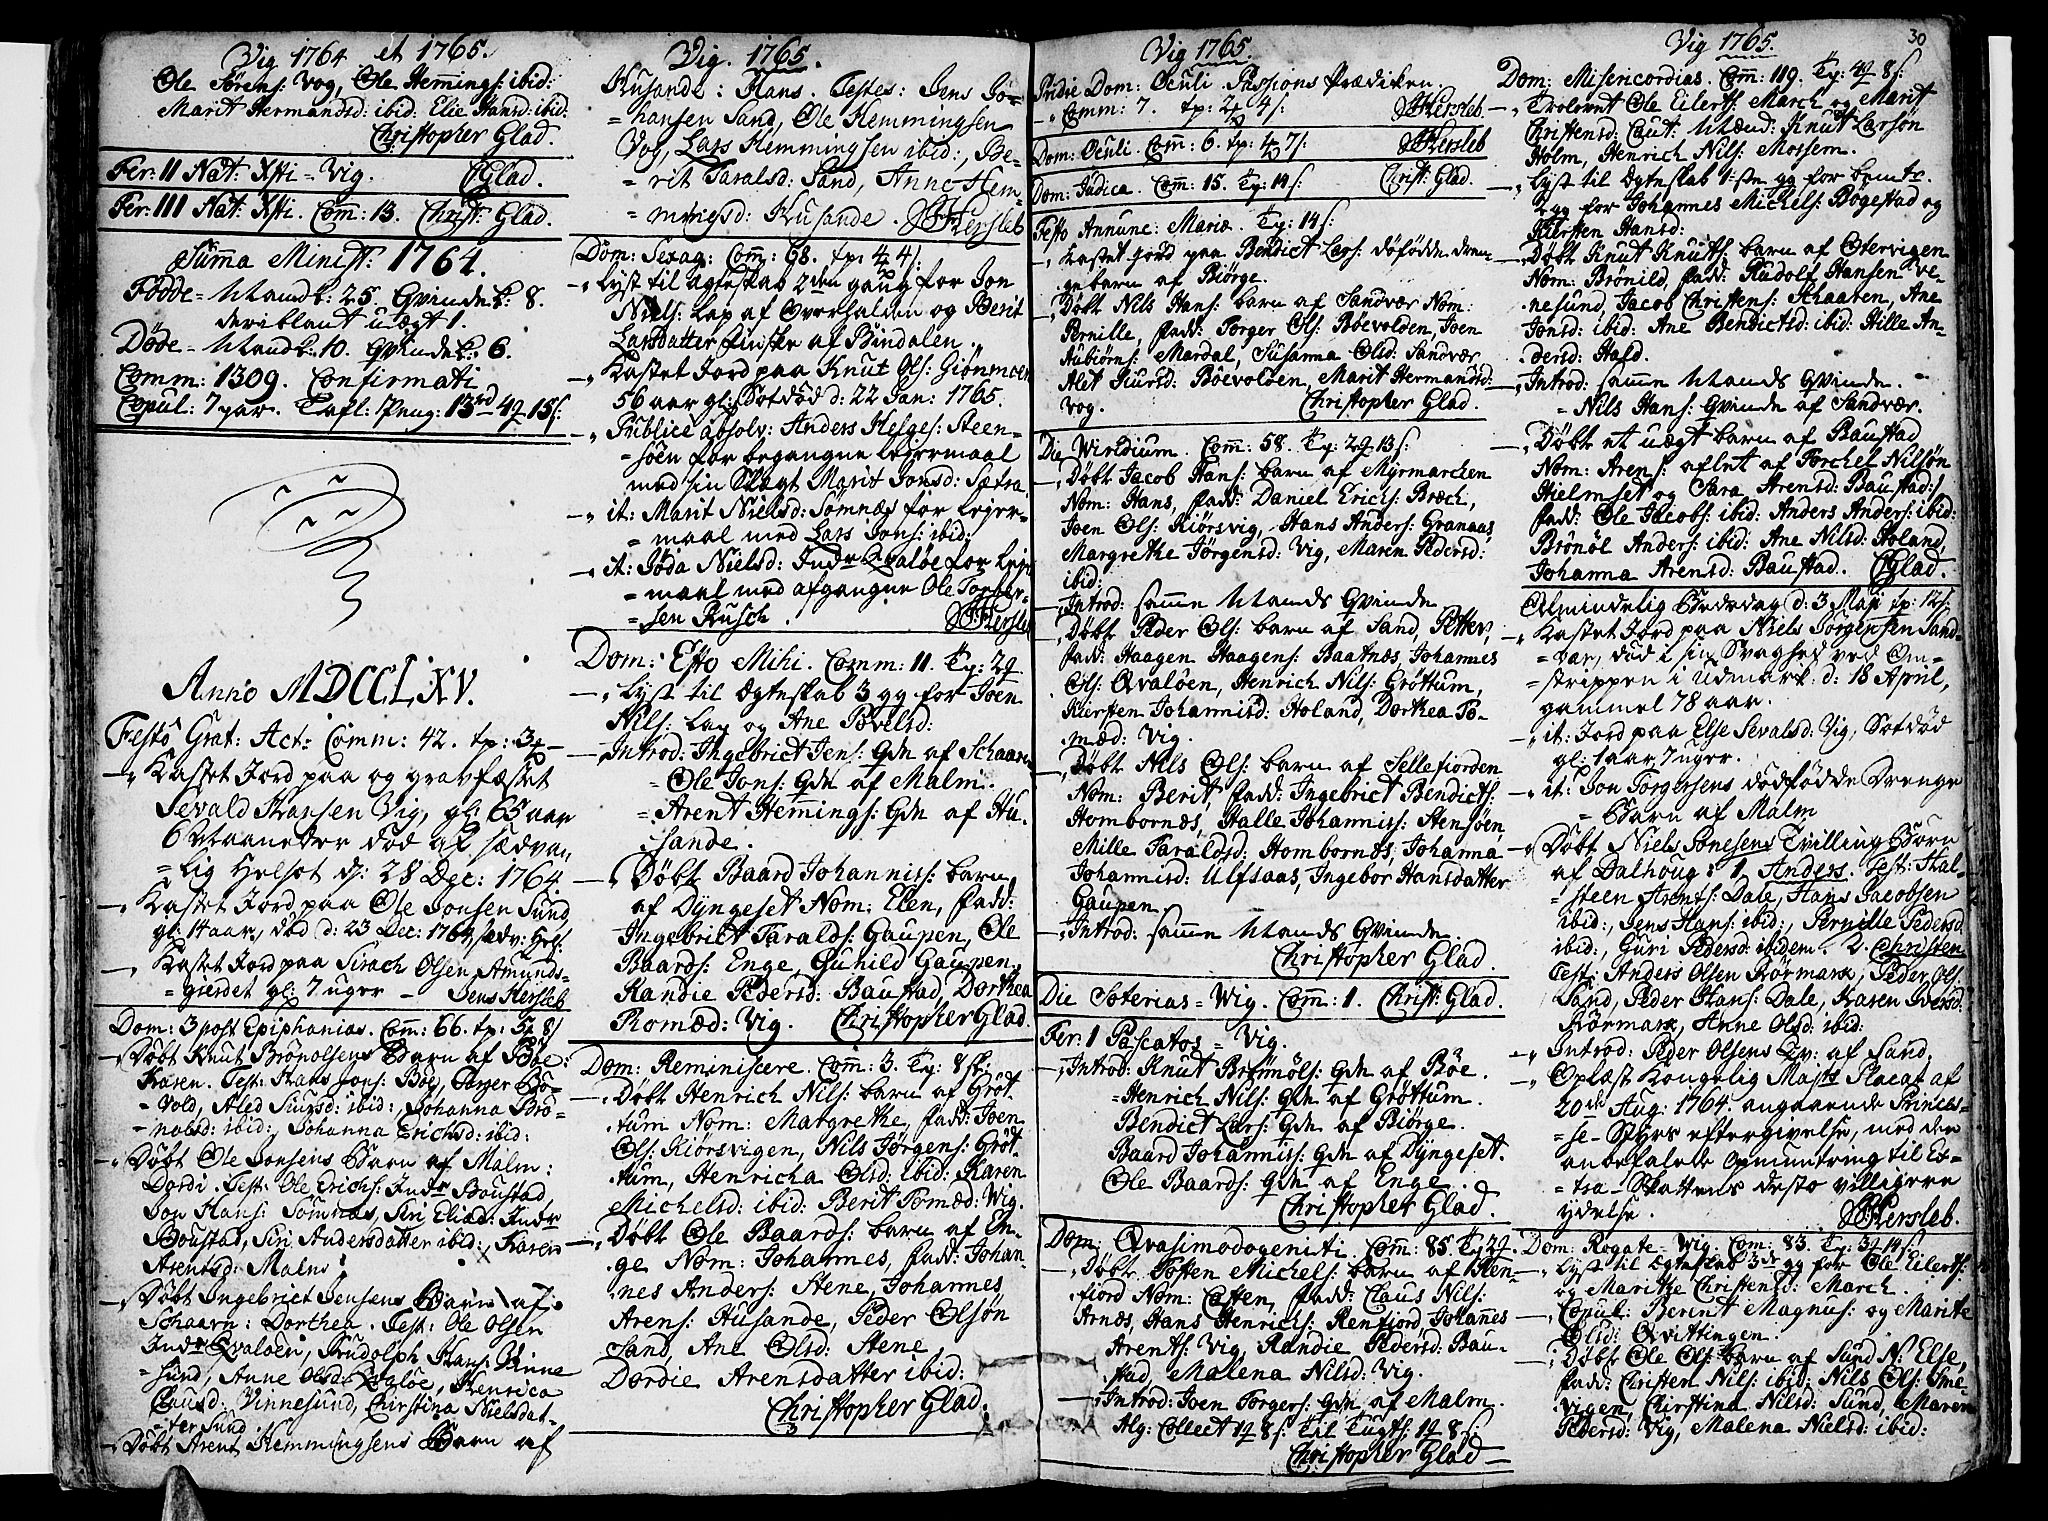 Vig 1764 et 1765.
Ole Sørens: Vog, Ole Hemings: ibid:
Marit Hermandsd: ibid: Elie Hansd: ibid:
Christopher Glad.
Fer: II Nat: Xsti = Vig. CGlad.
Fer: III Nat: Xsti. Com: 13. Christ: Glad.
Summa Minist: 1764.
Fødde = Mandk: 25. Qvindek: 8.
deriblant uægt 1.
Døde = Mandk: 10. Qvindek: 6.
Comm: 1309. Confirmati
Copul: 7 par. Tafl: Peng: 13rd 4 15s:
Anno MDCCLXV.
Festo Grat: Act: Comm: 42. tp: 3
Kastet Jord paa og gravfæstet
Sevald Hansen Vig, gl: 65 aar
6 Maaneder død af sædvan
= lig Helsot d: 28 Dec: 1764
Kastet Jord paa Ole Jonsen Sund
gl: 14 aar, død d: 23 Dec: 1764, sædv: Hels:
Kastet Jord paa Sirach Olsen Amunds-
= gierdet gl: 7 uger - Jens Hersleb
Dom: 3 post Epiphanias. Com: 66. tp: 3 8s
Døbt Knut Brønolsens Barn af Bøe:
Karen. Test: Hans Jons: Bøe, Torger Bø-
= vold, Aled Siursd: ibid:, Johanna Brø-
= nolsd: ibid:, Johanna Erichsd: ibid:
Døbt Ole Jonsens Barn af Malm:
Dordi. Test: Ole Erichs: Indr Boustad,
Jon Hans: Sømnæs, Siri Eliæd: Indr
Boustad, Siri Andersdatter ibid: Karen
Arentsd: Malm:
Døbt Ingebrict Jensens Barn af
Schaarn: Dorthea. Test: Ole Olsen
Indr Qvaløen, Rudolph Hans: Vinne
= sund, Anne Olsd: Qvaløe, Henrica
Clausd: Vinnesund, Christina Nielsdat-
= ter Sund.
Døbt Arent Hemmingsens Barn af
Vig. 1765.
Husande: Hans. Testes: Jens Jo-
= hansen Sand, Ole Hemmingsen
Vog, Lars Hemmingsen ibid:, Be-
= rit Taralsd: Sand, Anne Hem-
= mingsd: Husande JHersleb
Dom: Sexag: Com: 68. tp: 4 4s
Lyst til Ægteskab 2den gang for Jon
Niels: Lap af Overhalden og Berit
Larsdatter Finske af Bindalen.
Kastet Jord paa Knut Ols: Giønmoen
56 aar gl: Sotdød d: 22 Jan: 1765.
Publice absolv: Anders Helges: Steen-
= søen for begangne Lejermaal
med sin Slægt Marit Jonsd: Sætra
it: Marit Nielsd: Sømnæs for Lejer-
= maal med Lars Jons: ibid:
it: Giøda Nielsd: Indr Qvaløe for Lejer
= maal med afgangne Ole Torger-
= sen Rusch. JHersleb
Dom: Esto Mihi. Comm: 11. Tp: 2
Lyst til Ægteskab 3 gg for Joen
Nils: Lap og Ane Povelsd:
Introd: Ingebrict Jens: Qdn af Schaaren
= Ole Jons: Qdn af Malm.
= Arent Hemings: Qdn af Hu.
sande.
Døbt Baard Johanniss: barn
af Dyngeset Nom: Elen, fadd:
Ingebrict Taralds: Gaupen, Ole
Baards: Enge, Gunild Gaupen,
Randie Pedersd: Baustad, Dorthea
Romæd: Vig. Christopher Glad.
Dom: Reminiscere. Com: 3. Tp: 8sk:
Døbt Henrich Nils: barn af Grøt
tum Nom: Margrethe, fadd: Joen
Ols: Kiørsvigen, Nils Jørgens: Grøt
tum, Henricha Olsd: ibid: Karen
Michelsd: ibid: Berit Tomæd: Vig.
Døbt Ole Baards: barn af En-
ge Nom: Johannes, fadd: Johan-
nes Anders: Stene, Johannes
Arens: Husande, Peder Olsøn
Sand, Ane Olsd: Stene,
Dordie Arensdatter ibid:
Christopher Glad.
Vig 1765.
Pridie Dom: Oculi. Passions Prædiken.
Comm: 7. tp: 2 4s: JHersleb.
Dom: Oculi. Comm: 6. tp: 4 7s. JHersleb
Dom: Judica. Com: 15. Tp: 14s: Christ: Glad.
Festo Annunc: Mariæ. Tp: 14s:
Kastet Jord paa Bendict Lars: døfødde dren-
ge barn af Biørge.
Døbt Nils Hans: barn af Sandvær Nom:
Pernille, fadd: Torger Ols: Bøevolden, Joen
Aubiørns: Mardal, Susanna Olsd: Sandvær
Alet Siursd: Bøevolden, Marit Hermandsd:
Vog. Christopher Glad.
Die Viridium. Comm: 58. Tp: 2 13s:
Døbt Jacob Hans: barn af Myrmarchen
Nom: Hans, fadd: Daniel Erichs: Bræch,
Joen Ols: Kiørsvig, Hans Anders: Granaas,
Margrethe Jørgensd: Vig, Maren Pedersd:
ibid:
Introd: samme Mands Qvinde
Døbt Peder Ols: barn af Sand, Petter,
fadd: Haagen Haagens: Baatnæs, Johannes
Ols: Qvaløen, Henrich Nils: Grøttum,
Kiersten Johannisd: Holand, Dorthea To-
mæd: Vig.
Døbt Nils Ols: barn af Sellefiorden
Nom: Berit, fadd: Ingebrict Bendicts:
Hombornæs, Halle Johanniss: Stensøen
Mille Taraldsd: Hombornæs, Johanna
Johannisd: Ulfsaas, Ingebor Hansdatter
Gaupen.
Introd: samme Mands Qvinde.
Christopher Glad.
Die Soterias = Vig. Com: 1. Christ: Glad.
Fer: 1 Pascatos = Vig.
Introd: Knut Brønnøls: Qdn af Bøe.
= Henrich Nils: Qdn af Grøttum.
Bendict Lars: Qdn af Biørge.
Baard Johanniss: Qdn af Dyngeset.
Ole Baards: Qdn af Enge.
Christopher Glad.
Dom: Qvasimodogeniti. Com: 85. Tp 2
Døbt Tosten Michels: barn af Ren-
fiord Nom: Costen, fadd: Claus Nils:
Arnæs, Hans Henrichs: Renfiord, Johannes
Arents: Vig, Randie Pedersd: Bau-
stad, Malena Nilsd: Vig.
Introd: Joen Torgers: Qdn af Malm.
Alg: Collect 1 8s: Til Tugts: 1 8s:
Christopher Glad
Vig 1765.
30
Dom: Misericordias. Com: 119. Tp: 4 8s:
Trolovet Ole Eilerts: March og Marit
Christensd: Caut: Mænd: Knut Larsøn
Holm, Henrich Nils: Mossem.
Lyst til Ægteskab 1ste gg for bemte.
2 gg for Johannes Michels: Bogestad og
Kiersten Hansd:
Døbt Knut Knuts: barn af Otervigen
Nom: Brønild, fadd: Rudolf Hansen Ve-
nesund, Jacob Christens: Schaaren, Ane
Jonsd: ibid: Ane Bendictsd: ibid: Hille An-
dersd: Hald.
Introd: samme Mands Qvinde.
= Nils Hans: Qvinde af Sandvær.
Døbt et uægt barn af Baustad
Nom: Aren: aflet af Torchel Nilsøn
Hielmset og Sara Arensd: Baustad:
fadd: Ole Jacobs: ibid: Anders Anders: ibid:
Brønøl Anders: ibid: Ane Nilsd: Holand,
Johanna Arensd: Baustad. CGlad.
Almindelig Bededag d: 3 Maji tp: 12s:
Kastet Jord paa Niels Jørgensen Sand-
= vær, død i sin Svaghed ved Om-
= strippen i Udmark d: 18 April,
gammel 78 aar.
it: Jord paa Else Sevalsd: Vig, Sotdød
gl: 1 aar 7 uger.
it: Jon Torgersens dødfødde Drenge
= Barn af Malm
Døbt Niels Jonesens Tvilling Børn
af Dalhoug: 1 Anders. Test: Hal-
= steen Arents: Dale, Hans Jacobsen
ibid:, Jens Hans: ibid:, Pernille Pedersd
ibid:, Guri Pedersd: ibidem. 2. Christen
Test: Anders Olsen Rørmark, Peder Ols
Sand, Peder Hans: Dale, Karen Iversd:
Rørmark, Anne Olsd: ibid:
Introd: Peder Olsens Qv: af Sand.
Oplæst Kongelig Majts Placat af
20de Aug: 1764. angaaende Princes-
= se-Styrs eftergivelse, med den
anbefalede opmuntring til Ex-
= tra-Skattens desto villigere
ydelse. JHersleb.
Dom: Rogate = Vig. Com: 83. Tp: 3 14s:
Lyst til Ægteskab 3de gg for Ole Eilerts:
og Marithe Christensd: March.
Copul: Berent Magnus: og Marite
Olsd: Qvittingen.
Døbt Ole Ols: barn af Sund N: Else,
fadd: Christen Nils: ibid: Nils Ols: Sme-
vigen, Christina Nilsd: Sund, Maren
Pedersd: Vig, Malena Nielsd: ibid: